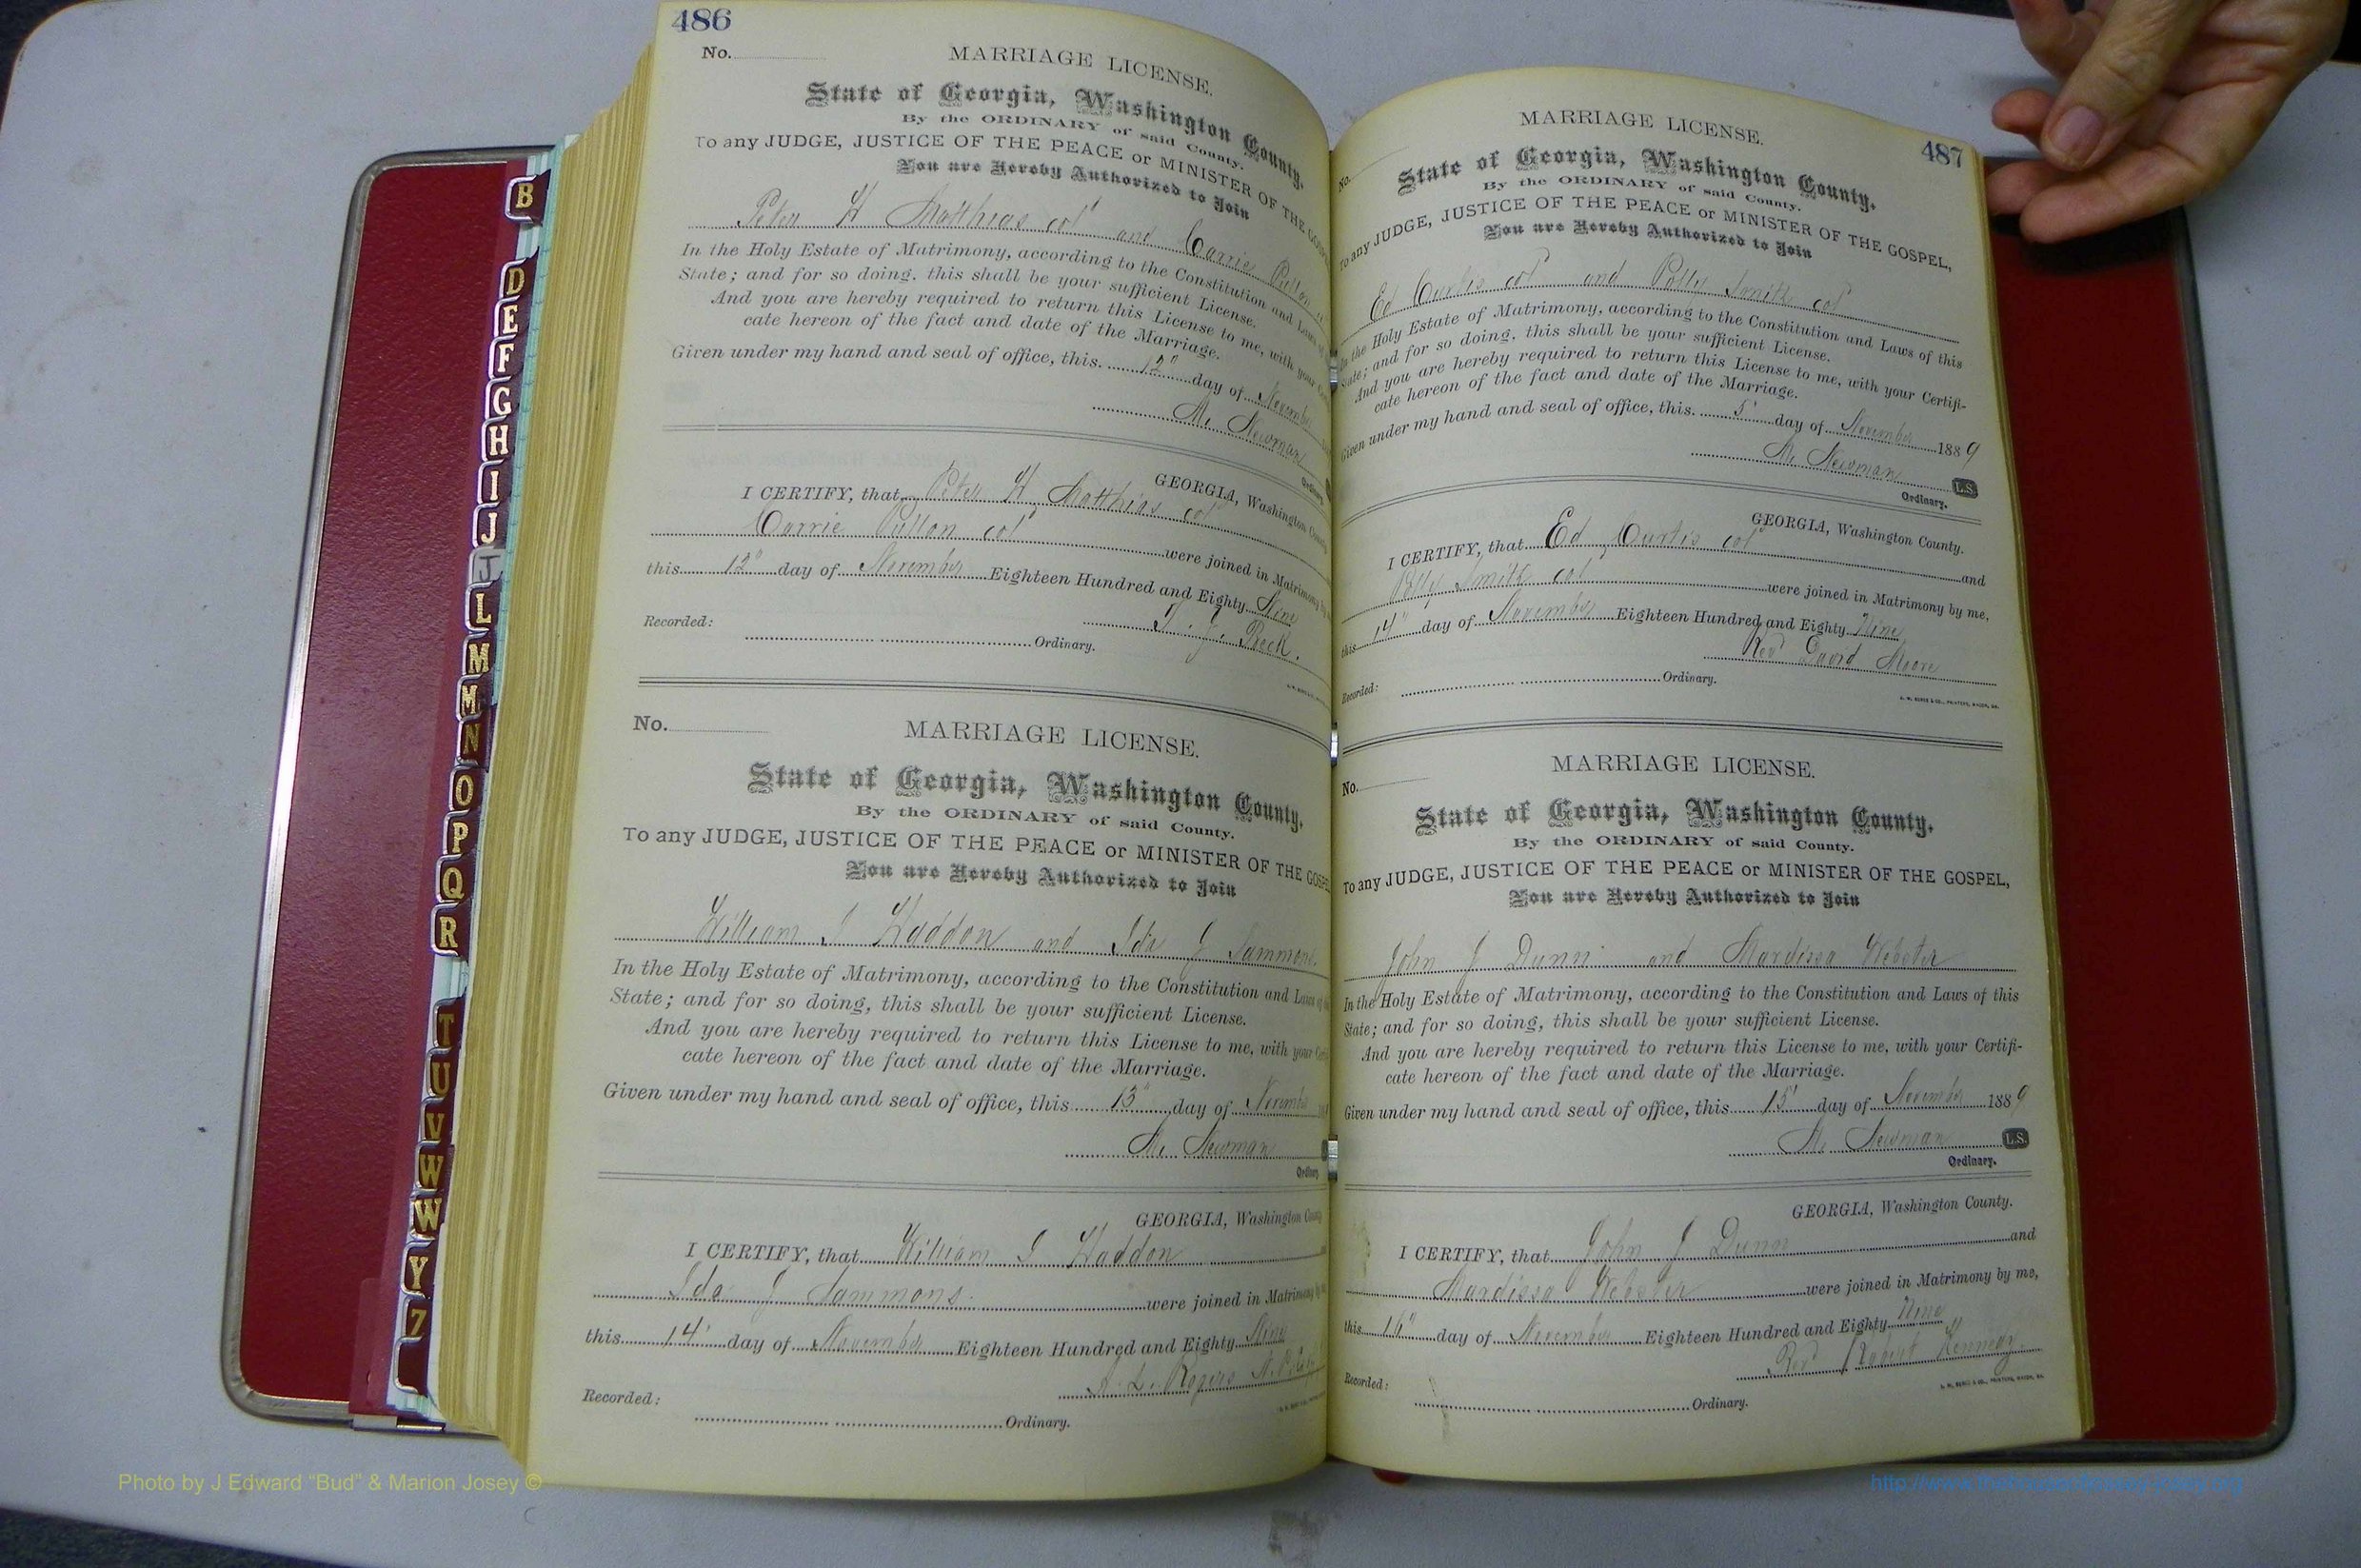 486
No.
MARRIAGE LICENSE.
State of Georgia, Washington County.
By the ORDINARY of said County.
To any JUDGE, JUSTICE OF THE PEACE or MINISTER OF THE
You are Hereby Authorized to Join
Peter H Matthias col and Carrie
In the Holy Estate of Matrimony, according to the Constitution and Laws
State; and for so doing, this shall be your sufficient License.
And you are hereby required to return this License to me, with your
cate hereon of the fact and date of the Marriage.
Given under my hand and seal of office, this 12" day of November
M. Newman
Ordinary.
GEORGIA, Washington County
I CERTIFY, that Peter H Matthias col
Carrie col were joined in Matrimony
this 12" day of November Eighteen Hundred and Eighty Nine
Recorded:
Ordinary.
No.
MARRIAGE LICENSE.
State of Georgia, Washington County.
By the ORDINARY of said County.
To any JUDGE, JUSTICE OF THE PEACE or MINISTER OF THE
You are Hereby Authorized to Join
William I Haddon and Ida J Sammons
In the Holy Estate of Matrimony, according to the Constitution and Laws
State; and for so doing, this shall be your sufficient License.
And you are hereby required to return this License to me, with your
cate hereon of the fact and date of the Marriage.
Given under my hand and seal of office, this 13" day of November
M. Newman
Ordinary
GEORGIA, Washington County
I CERTIFY, that William I Haddon
Ida J Sammons were joined in Matrimony
this 14" day of November Eighteen Hundred and Eighty Nine
Rogers
Recorded:
Ordinary.
487
MARRIAGE LICENSE.
No.
State of Georgia, Washington County.
By the ORDINARY of said County.
To any JUDGE, JUSTICE OF THE PEACE or MINISTER OF THE GOSPEL,
You are Hereby Authorized to Join
Ed Curtis col and Polly Smith col
In the Holy Estate of Matrimony, according to the Constitution and Laws of this
State; and for so doing, this shall be your sufficient License.
And you are hereby required to return this License to me, with your Certifi-
cate hereon of the fact and date of the Marriage.
Given under my hand and seal of office, this 5" day of November 1889
M. Newman L.S.
Ordinary.
GEORGIA, Washington County.
I CERTIFY, that Ed Curtis col and
Polly Smith col were joined in Matrimony by me,
this 14" day of November Eighteen Hundred and Eighty Nine
Rev David Moore
Recorded:
Ordinary.
J. W. BURKE & CO., PRINTERS, MACON, GA.
MARRIAGE LICENSE.
No.
State of Georgia, Washington County.
By the ORDINARY of said County.
To any JUDGE, JUSTICE OF THE PEACE or MINISTER OF THE GOSPEL,
You are Hereby Authorized to Join
John J Dunn and Mardissa Webster
In the Holy Estate of Matrimony, according to the Constitution and Laws of this
State; and for so doing, this shall be your sufficient License.
And you are hereby required to return this License to me, with your Certifi-
cate hereon of the fact and date of the Marriage.
Given under my hand and seal of office, this 15" day of November 1889
M. Newman L.S.
Ordinary.
GEORGIA, Washington County.
I CERTIFY, that John J Dunn and
Mardissa Webster were joined in Matrimony by me,
this 16" day of November Eighteen Hundred and Eighty Nine
Rev Robert Kennedy
Recorded:
Ordinary.
B
D
E
F
G
H
I
J
J
L
M
M
N
O
P
Q
R
T
U
V
W
W
Y
Z
Photo by J Edward "Bud" & Marion Josey ©